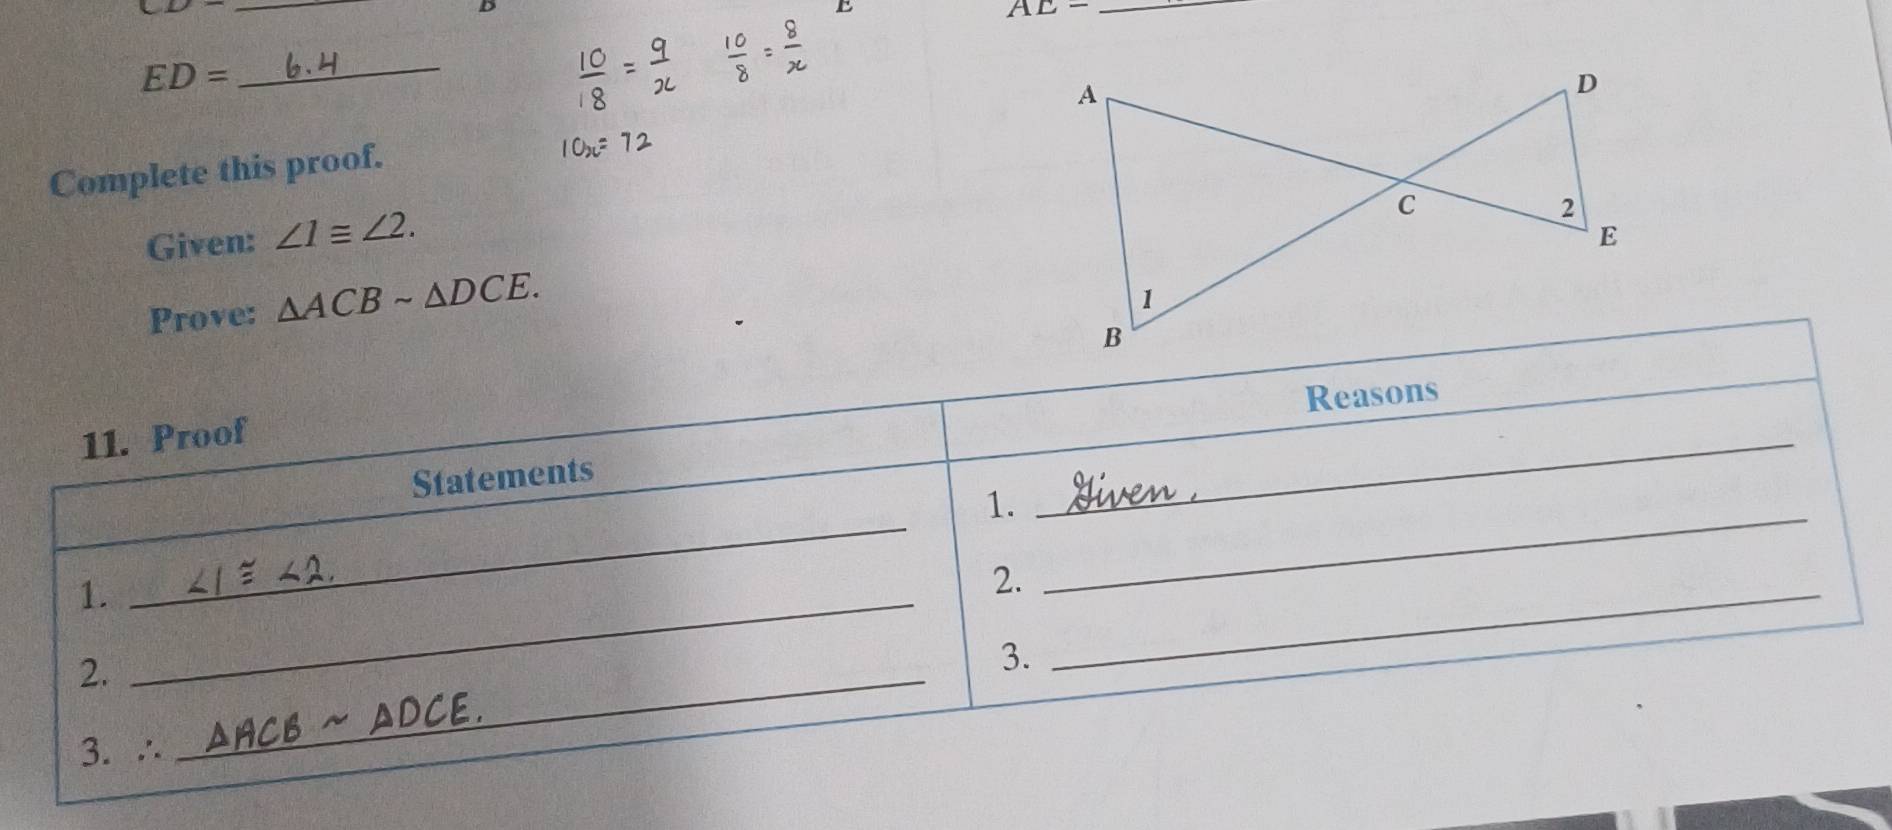 ED = 6.4
10/18 = 9/x 10/8 = 8/x
10x = 72
Complete this proof.
Given: ∠1 ≅ ∠2.
Prove: ΔACB ~ ΔDCE.
A
D
C
2
E
1
B
11. Proof
Statements
Reasons
1. ∠1 ≅ ∠2.
1. Given.
2.
2.
3. ∴ ΔACB ~ ΔDCE.
3.